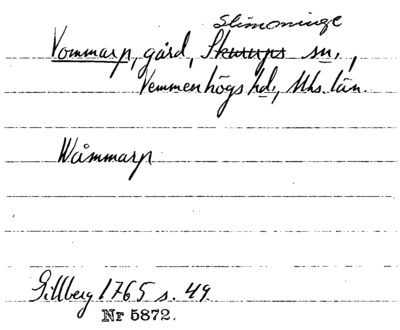 Slimminge
Vommarp, gård, Skurups sn.,
Vemmenhögs hd., Mhs. län.
Wåmmarp
Gillberg 1765 s. 49.
Nr 5872.